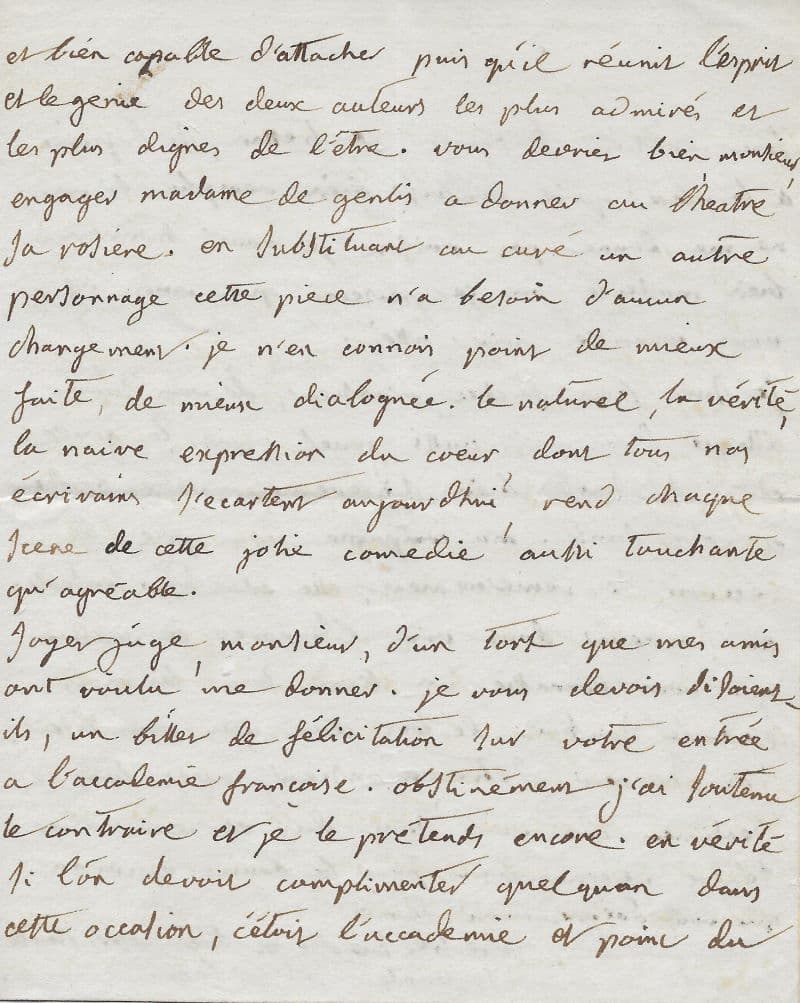 et bien capable d'attacher puis qu'il réunit l'esprit
et le genie des deux auteurs les plus admirés et
les plus dignes de l'être. vous devriez bien, monsieur,
engager madame de genlis a donner au theatre
sa rosiere. en substituant au curé un autre
personnage cette piece n'a besoin d'aucun
changement. je n'en connois point de mieux
faite, de mieux dialoguée. le naturel, la vérité,
la naive expression du coeur, dont tous nos
écrivains s'ecartent aujourd'hui, rend chaque
scene de cette jolie comedie, aussi touchante
qu'agréable.
soyez juge, monsieur, d'un tort que mes amis
ont voulu me donner. je vous devois disoient-
ils, un billet de félicitation sur votre entrée
a l'accademie françoise. obstinément j'ai soutenu
le contraire et je le prétends encore. en vérité
si l'on devoit complimenter quelqu'un dans
cette occasion, c'étoit l'accademie et point du